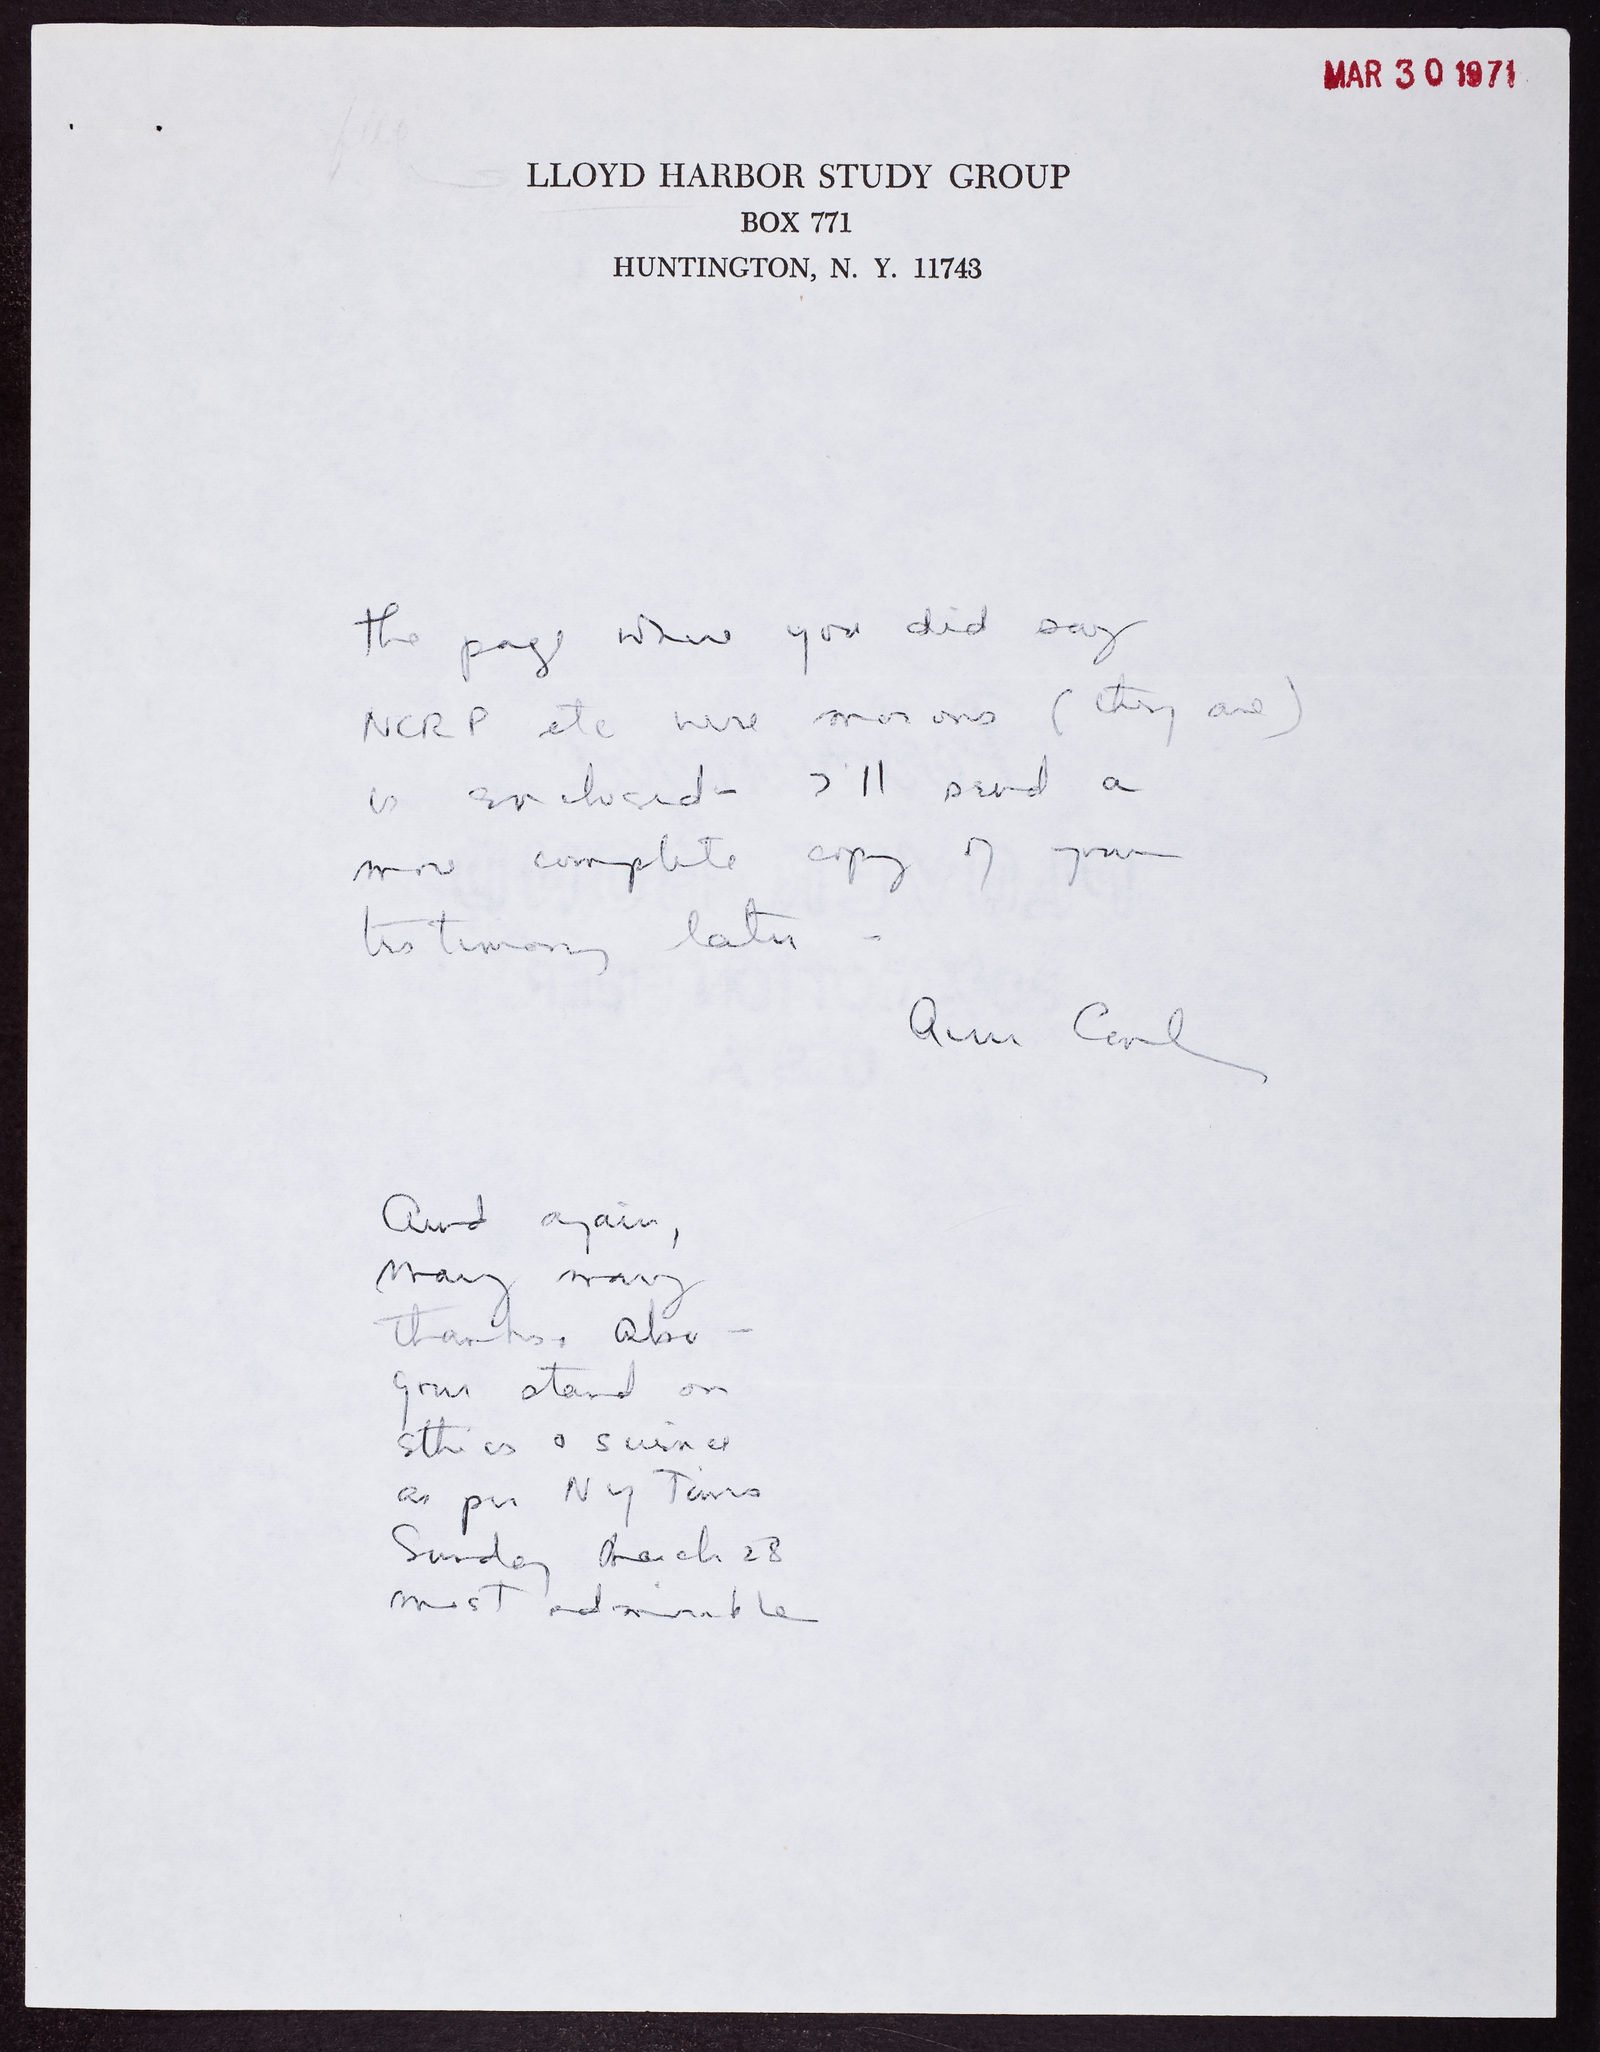 MAR 30 1971
LLOYD HARBOR STUDY GROUP
BOX 771
HUNTINGTON, N. Y. 11743
The page where you did say
NCRP etc were morons (they are)
is enclosed - I'll send a
more complete copy of your
testimony later -
Ann Carl
And again,
Many many
thanks. Also -
your stand on
ethics & science
as per NY Times
Sunday March 28
most admirable